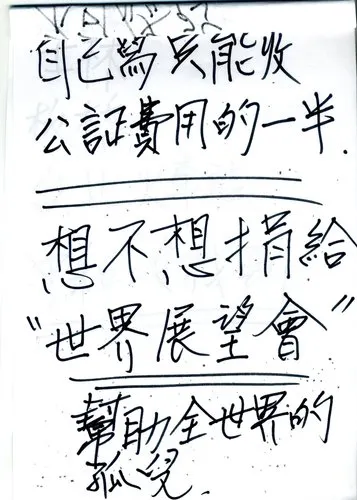 自己寫只能收
公証費用的一半.
想不想捐給
"世界展望會"
幫助全世界的
孤兒.